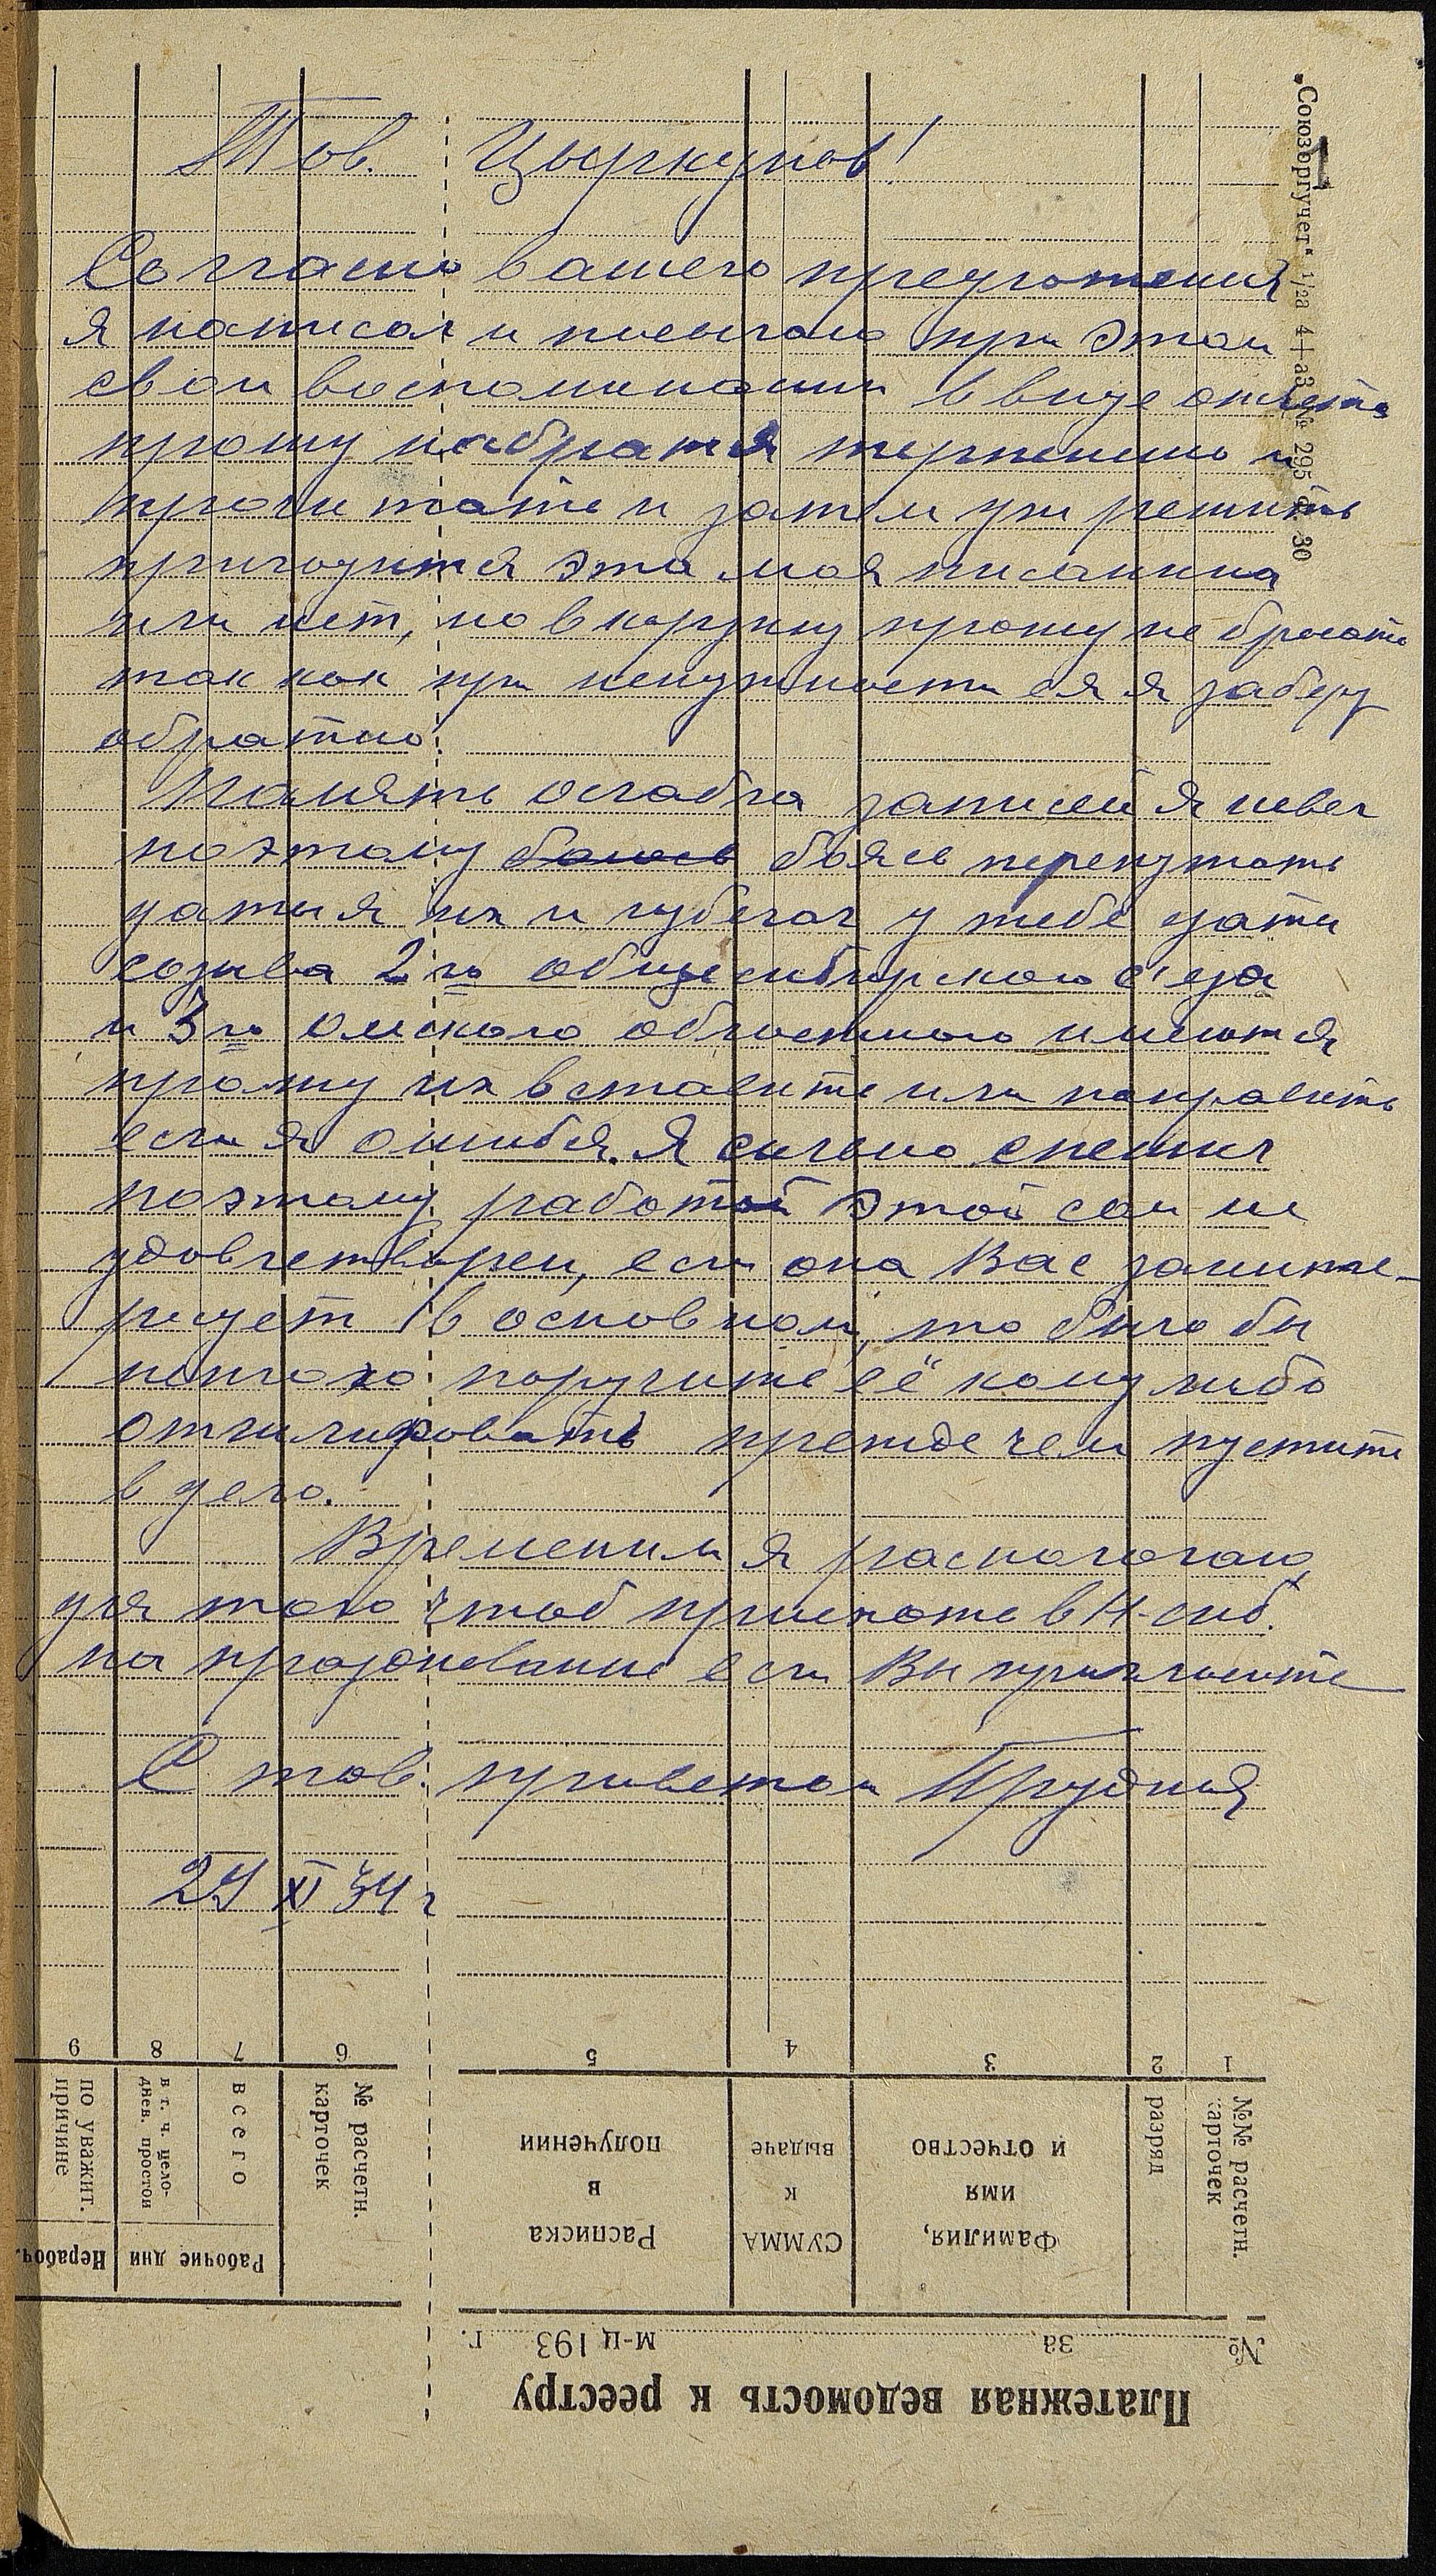 Тов. Цыркунов!
Согласно вашего предложения
я написал и посылаю при этом
свои воспоминания в виде отчета
прошу набратся терпению и
прочитать и затем уж решить
пригодится эта моя писанина
или нет, но в корзину прошу не бросать
так как при ненужности ея я заберу
обратно.
Память ослабла записей я не вел
поэтому боюсь боясь перепутать
даты я их и избегал у тебе даты
созыва 2го общесибирского с'езда
и 3го омского областного имеются
прошу их вставить или поправить
если я ошибся. Я сильно спешил
поэтому работой этой сам не
удовлетворен, если она Вас заинте-
ресует в основном, то было бы
неплохо поручить её кому либо
отшлифовать прежде чем пустить
в дело.
Временим я распологаю
для того чтоб приехать в Н-сиб.
на празднование если Вы пригласите
С тов. приветом Прудния
29 XI 34 г
1
"Союзоргучет" 1/2а 4+а3 № 295 ст. 30
Платежная ведомость к реестру
№ за м-ц 193 г.
№№ расчетн. карточек
разряд
Фамилия, имя и отчество
СУММА к выдаче
Расписка в получении
№ расчетн. карточек
Рабочие дни
всего
в т. ч. цело-днев. простои
Нерабоч.
по уважит. причине
1 2 3 4 5 6 7 8 9